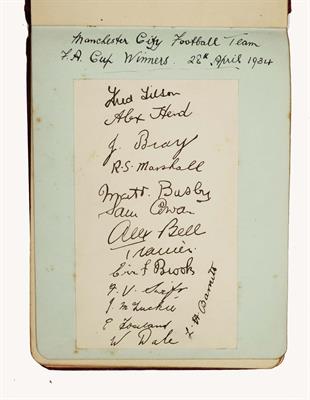 Manchester City Football Team
F.A. Cup Winners. 28th April 1934
Fred Tilson
Alex Herd
J. Bray
R.S. Marshall
Matt. Busby
Sam Cowan
Alex Bell
Trainer
Eric F Brook
F. V. Swift
J. McLuckie
E Toseland
W Dale
L. H Barnett